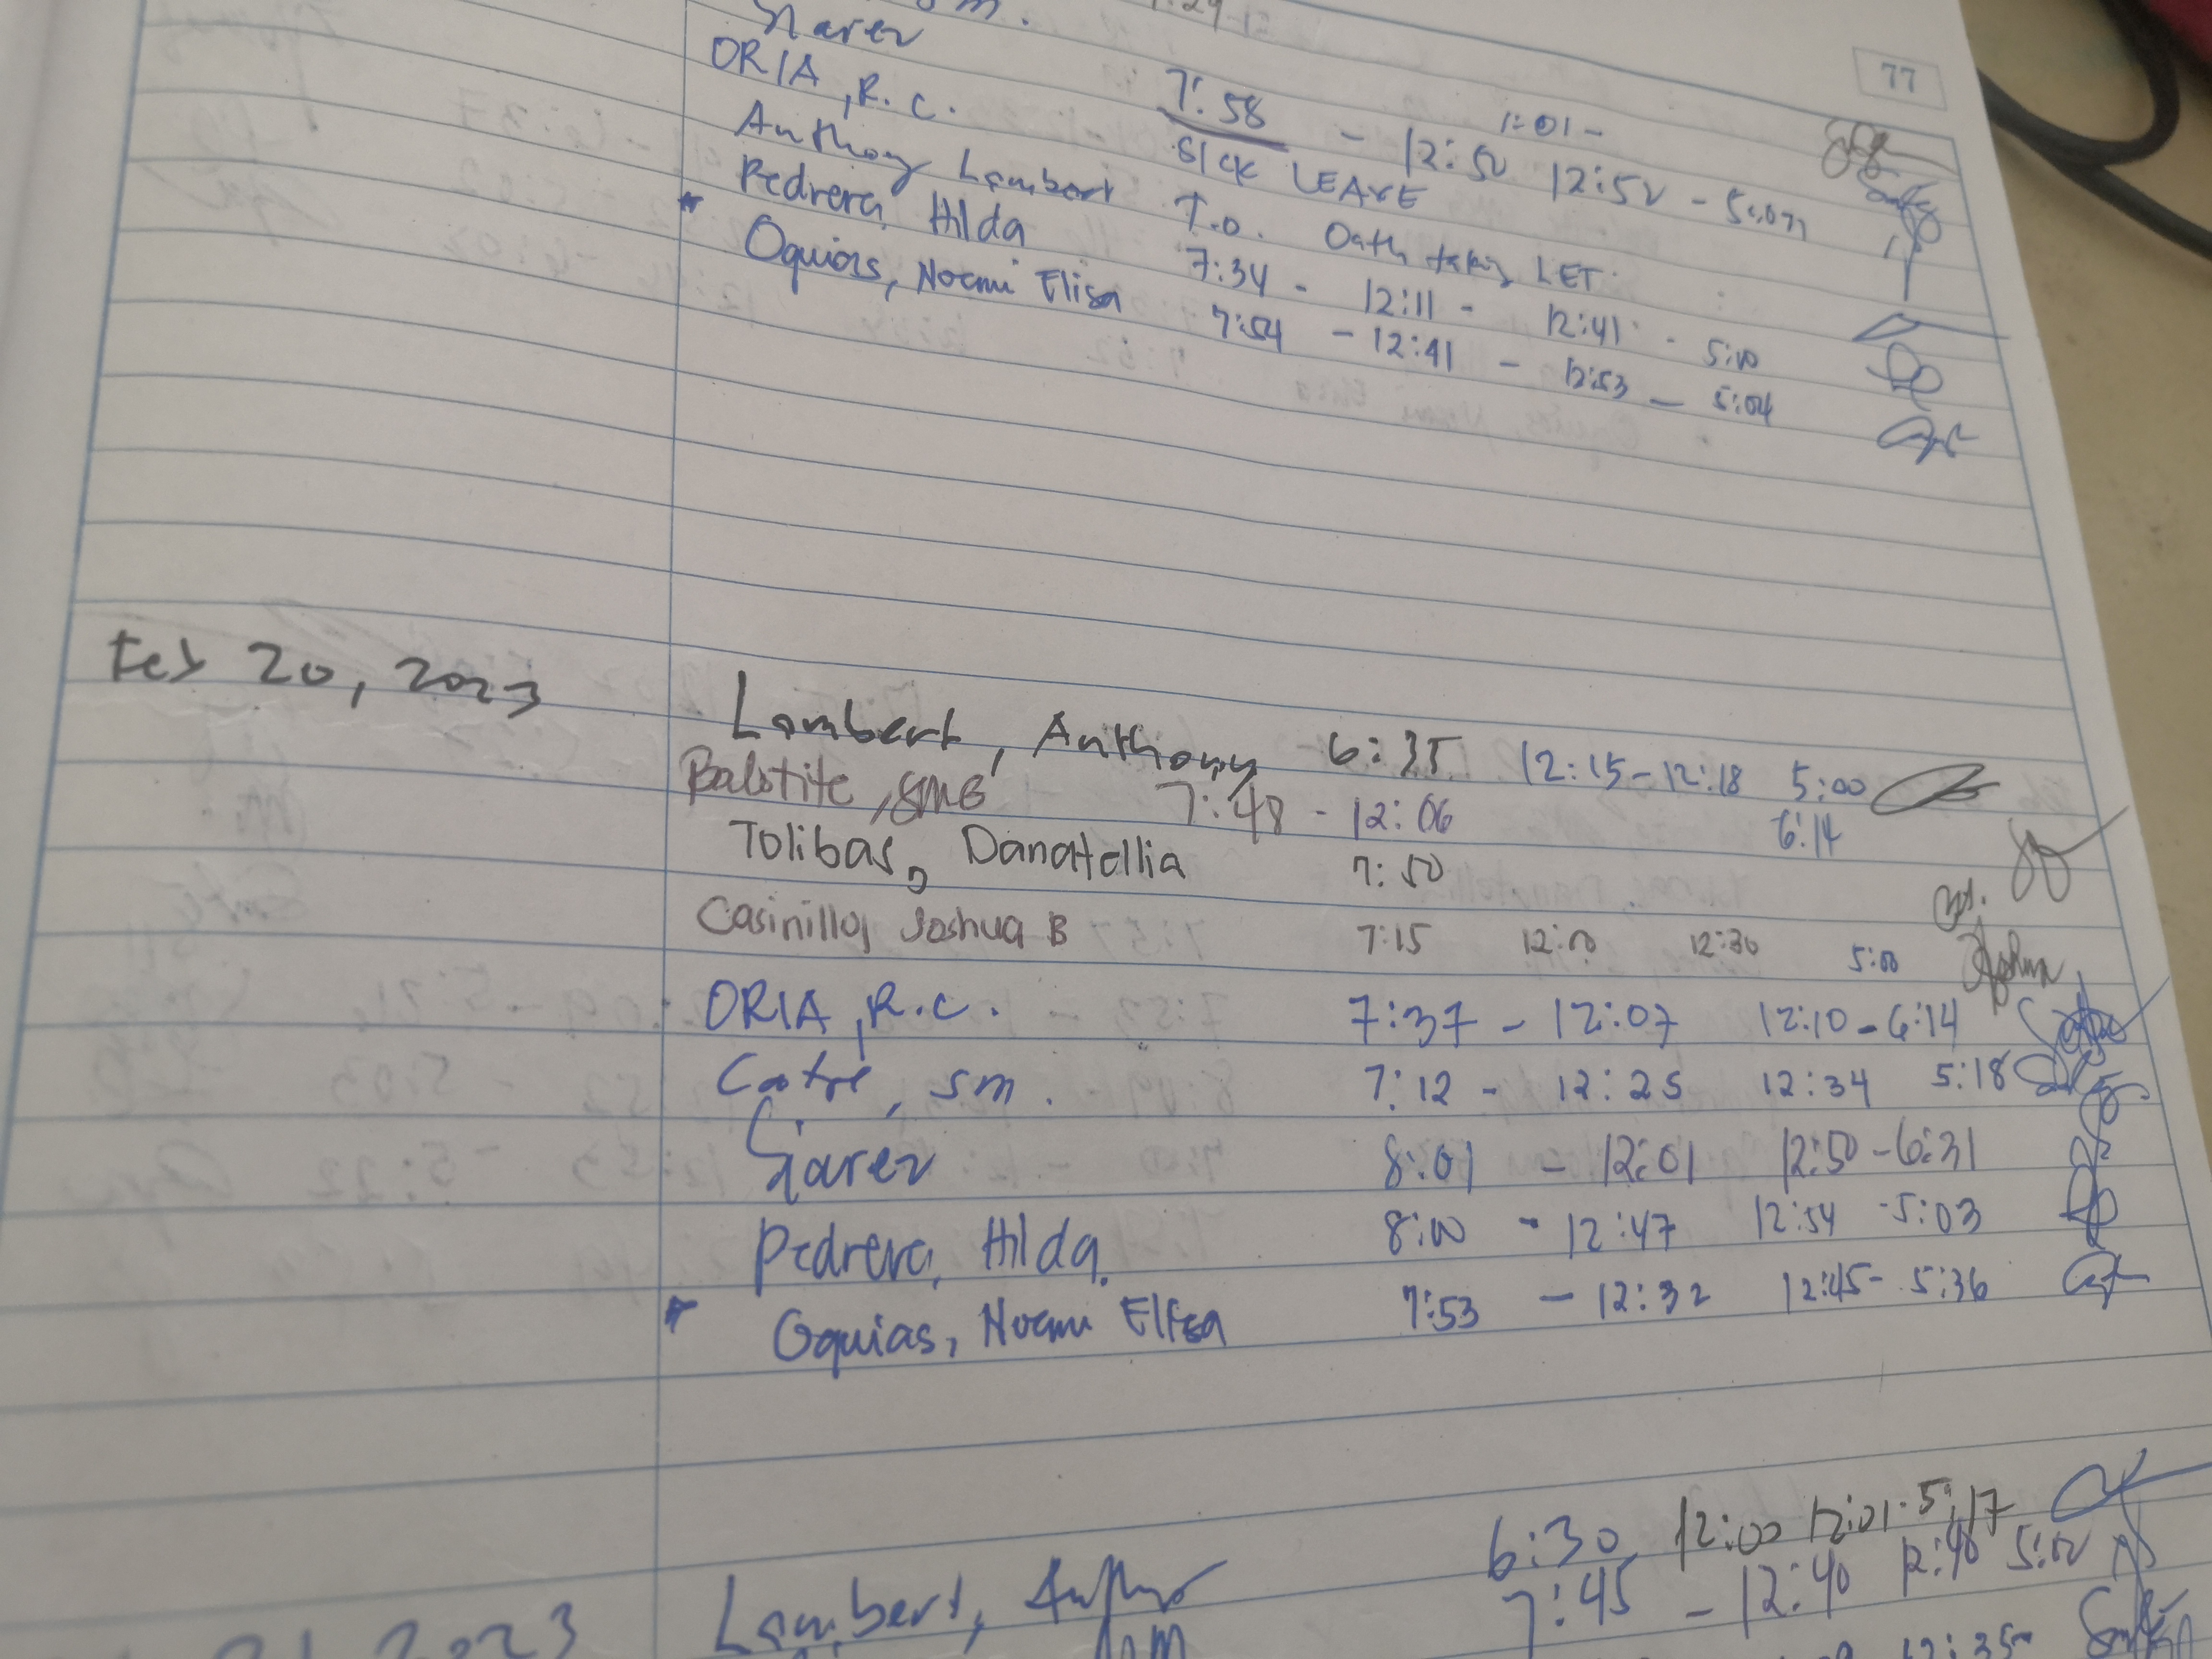 77
1:01-
7:58 - 12:50 12:52 - 5:07
ORIA, R.C. SICK LEAVE
Anthony Lambert T.O. Oath taking LET
Pedrera, Hilda 7:34 - 12:11 - 12:41 - 5:00
* Oquias, Noemi Elisa 7:54 - 12:41 - 12:53 - 5:04
Feb 20, 2023
Lambert, Anthony 6:35 12:15-12:18 5:00
Balotite, SMB 7:48 - 12:06 6:14
Tolibas, Danatellia 7:50
Casinillo, Joshua B 7:15 12:00 12:30 5:00
ORIA, R.C. 7:37 - 12:07 12:10 - 6:14
Cotre, sm. 7:12 - 12:25 12:34 5:18
8:01 - 12:01 12:50 - 6:31
Pedrera, Hilda. 8:00 - 12:47 12:54 - 5:03
* Oquias, Noemi Elisa 7:53 - 12:32 12:45 - 5:36
6:30 12:00 12:01 - 5:17
2023 Lambert, 7:45 - 12:40 12:40 5:00
12:35